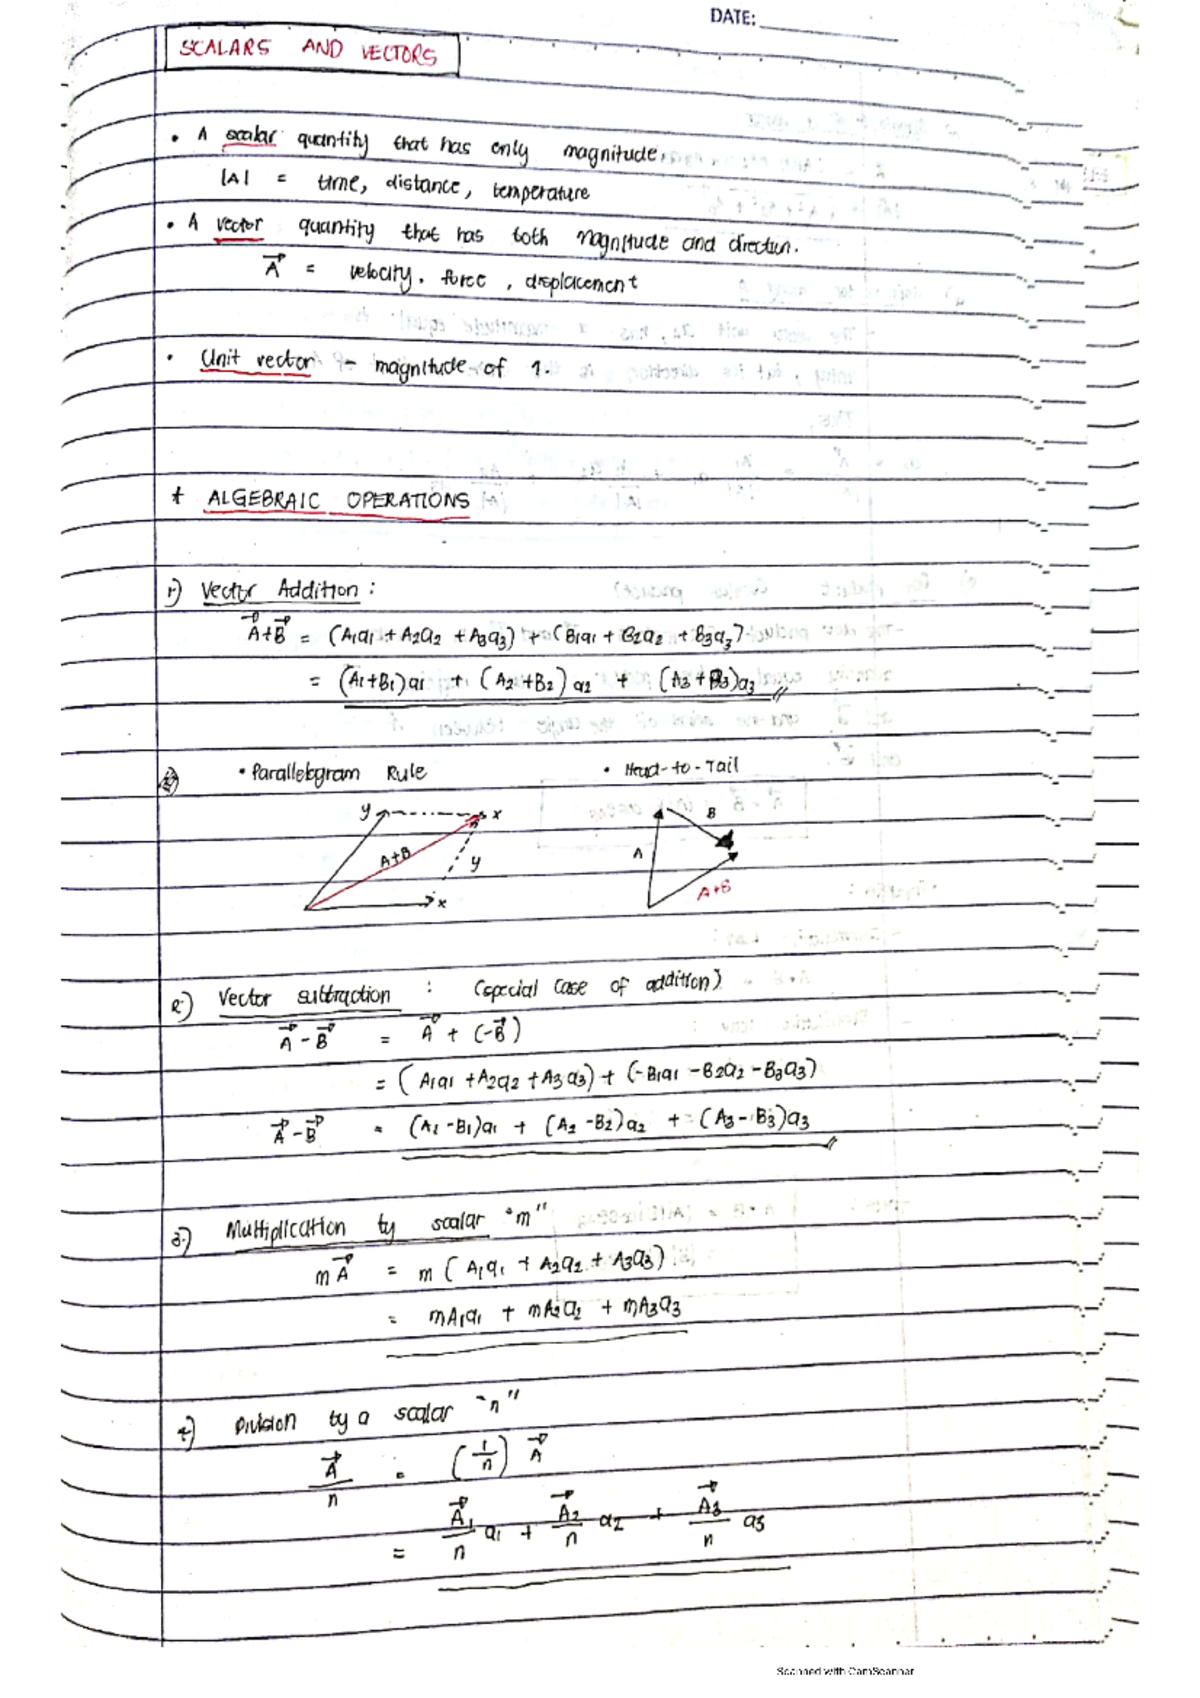 DATE:
SCALARS AND VECTORS
• A scalar quantity that has only magnitude.
|A| = time, distance, temperature
• A vector quantity that has both magnitude and direction.
A⃗ = velocity, force, displacement
• Unit vector - magnitude of 1.
* ALGEBRAIC OPERATIONS
1) Vector Addition :
A⃗+B⃗ = (A1a1 + A2a2 + A3a3) + (B1a1 + B2a2 + B3a3)
= (A1+B1)a1 + (A2+B2)a2 + (A3+B3)a3
• Parallelogram Rule • Head-to-Tail
y x B
A+B y A
x A+B
2) Vector subtraction : (special case of addition)
A⃗ - B⃗ = A⃗ + (-B⃗)
= (A1a1 + A2a2 + A3a3) + (-B1a1 - B2a2 - B3a3)
A⃗ - B⃗ = (A1 - B1)a1 + (A2 - B2)a2 + (A3 - B3)a3
3) Multiplication by scalar "m"
mA⃗ = m (A1a1 + A2a2 + A3a3)
= mA1a1 + mA2a2 + mA3a3
4) Division by a scalar "n"
A⃗/n = (1/n) A⃗
= A⃗1/n a1 + A⃗2/n a2 + A⃗3/n a3
Scanned with CamScanner